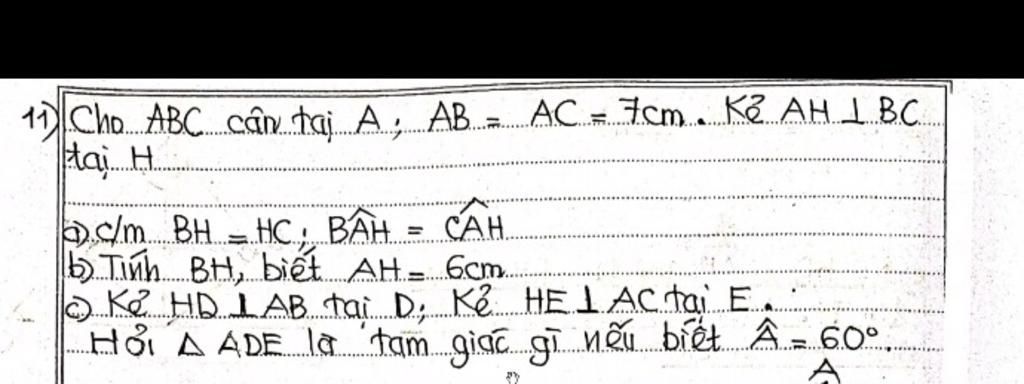 11) Cho ABC cân tại A; AB = AC = 7cm. Kẻ AH ⊥ BC
tại H
a) c/m BH = HC; BÂH = CÂH
b) Tính BH, biết AH = 6cm
c) Kẻ HD ⊥ AB tại D; Kẻ HE ⊥ AC tại E.
Hỏi Δ ADE là tam giác gì nếu biết Â = 60°.
A